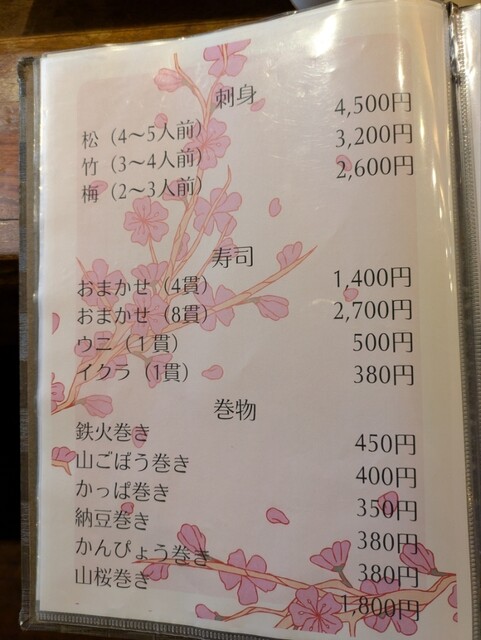 刺身
松（4～5人前） 4,500円
竹（3～4人前） 3,200円
梅（2～3人前） 2,600円
寿司
おまかせ（4貫） 1,400円
おまかせ（8貫） 2,700円
ウニ（1貫） 500円
イクラ（1貫） 380円
巻物
鉄火巻き 450円
山ごぼう巻き 400円
かっぱ巻き 350円
納豆巻き 380円
かんぴょう巻き 380円
山桜巻き 1,800円